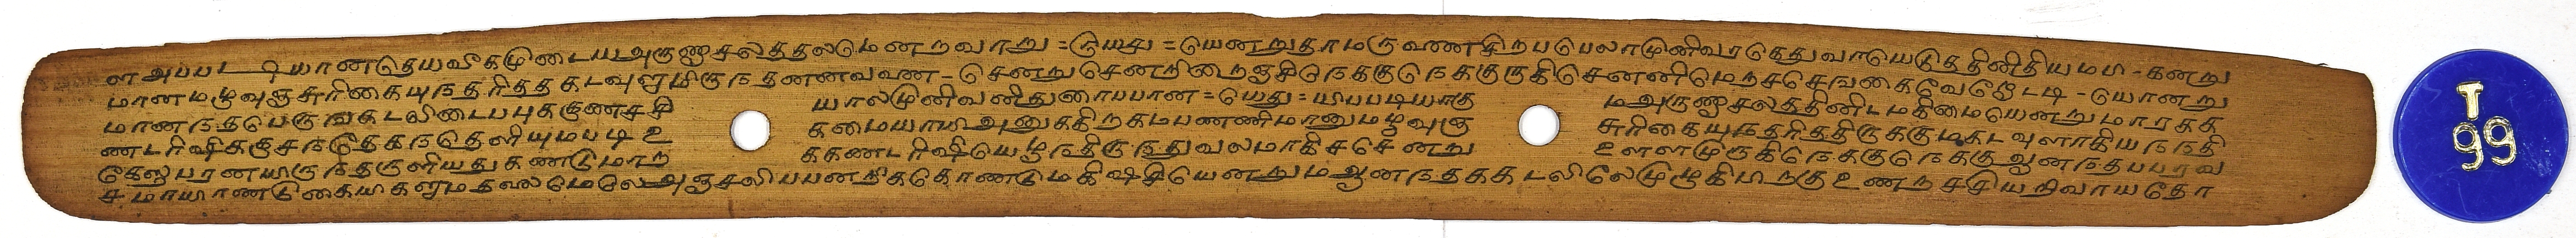 ள அபபடியானதெயவீகமுடையஅருணாசலத்தலமெனறவாறு = டுயசு = யெனறுதாமருவணசிறபபெலாமுனிவரகெதுவாயெடுத்தினிதியமபி - கனறு
மானமழுவுஞசுரிகையுநதரிதத கடவுளமிருநதனனவணெ - சென்றுசெனறிறைஞசிநெககுநெககுருகிசெனனிமெறசெஙகைவேரூடி - யொனறு
மானநதபெருஙகடலிடைபபுககுணாசசி யாலமுனிவனிதுரைபபான = யெது = யிபபடியாக மஅருணாசலததினிடமகிமையெனறுமாரகக
ணடரிஷிககுசநதேகநதெளியுமபடி உ கமையாயிஅனுககிறகமபணணிமானுமழுவுஞ சுரிகையுநதரிததிருககுமகடவுளாகியநநதி
கேஸபரனயிருநதருளியதுகணடுமாற ககணடரிஷியெழுநதிருநதுவலமாகிசசெனறு உளளமுருகிநெககுநெககுஆனநதபபரவ
சமாயிரணடுகையுகளுமதலைமேலெஅஞசலிபபணணிககொணடுமகிஷசியெனறுமஆனநதககடலிலேமுழுகிபிறகுஉணறசசியறிவாயதோ
T
99